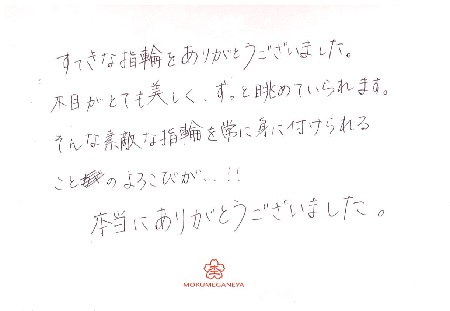 すてきな指輪をありがとうございました。
木目がとても美しく、ずっと眺めていられます。
そんな素敵な指輪を常に身に付けられる
ことのよろこびが…!!
本当にありがとうございました。
MOKUMEGANEYA